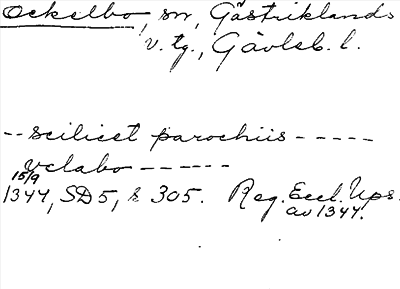 Ockelbo, sn, Gästriklands
v. tg., Gävleb. l.
-- scilicet parochiis -----
Vclabo ------
15/9
1344, SD5, s 305. Reg. Eccl. Ups.
av 1344.